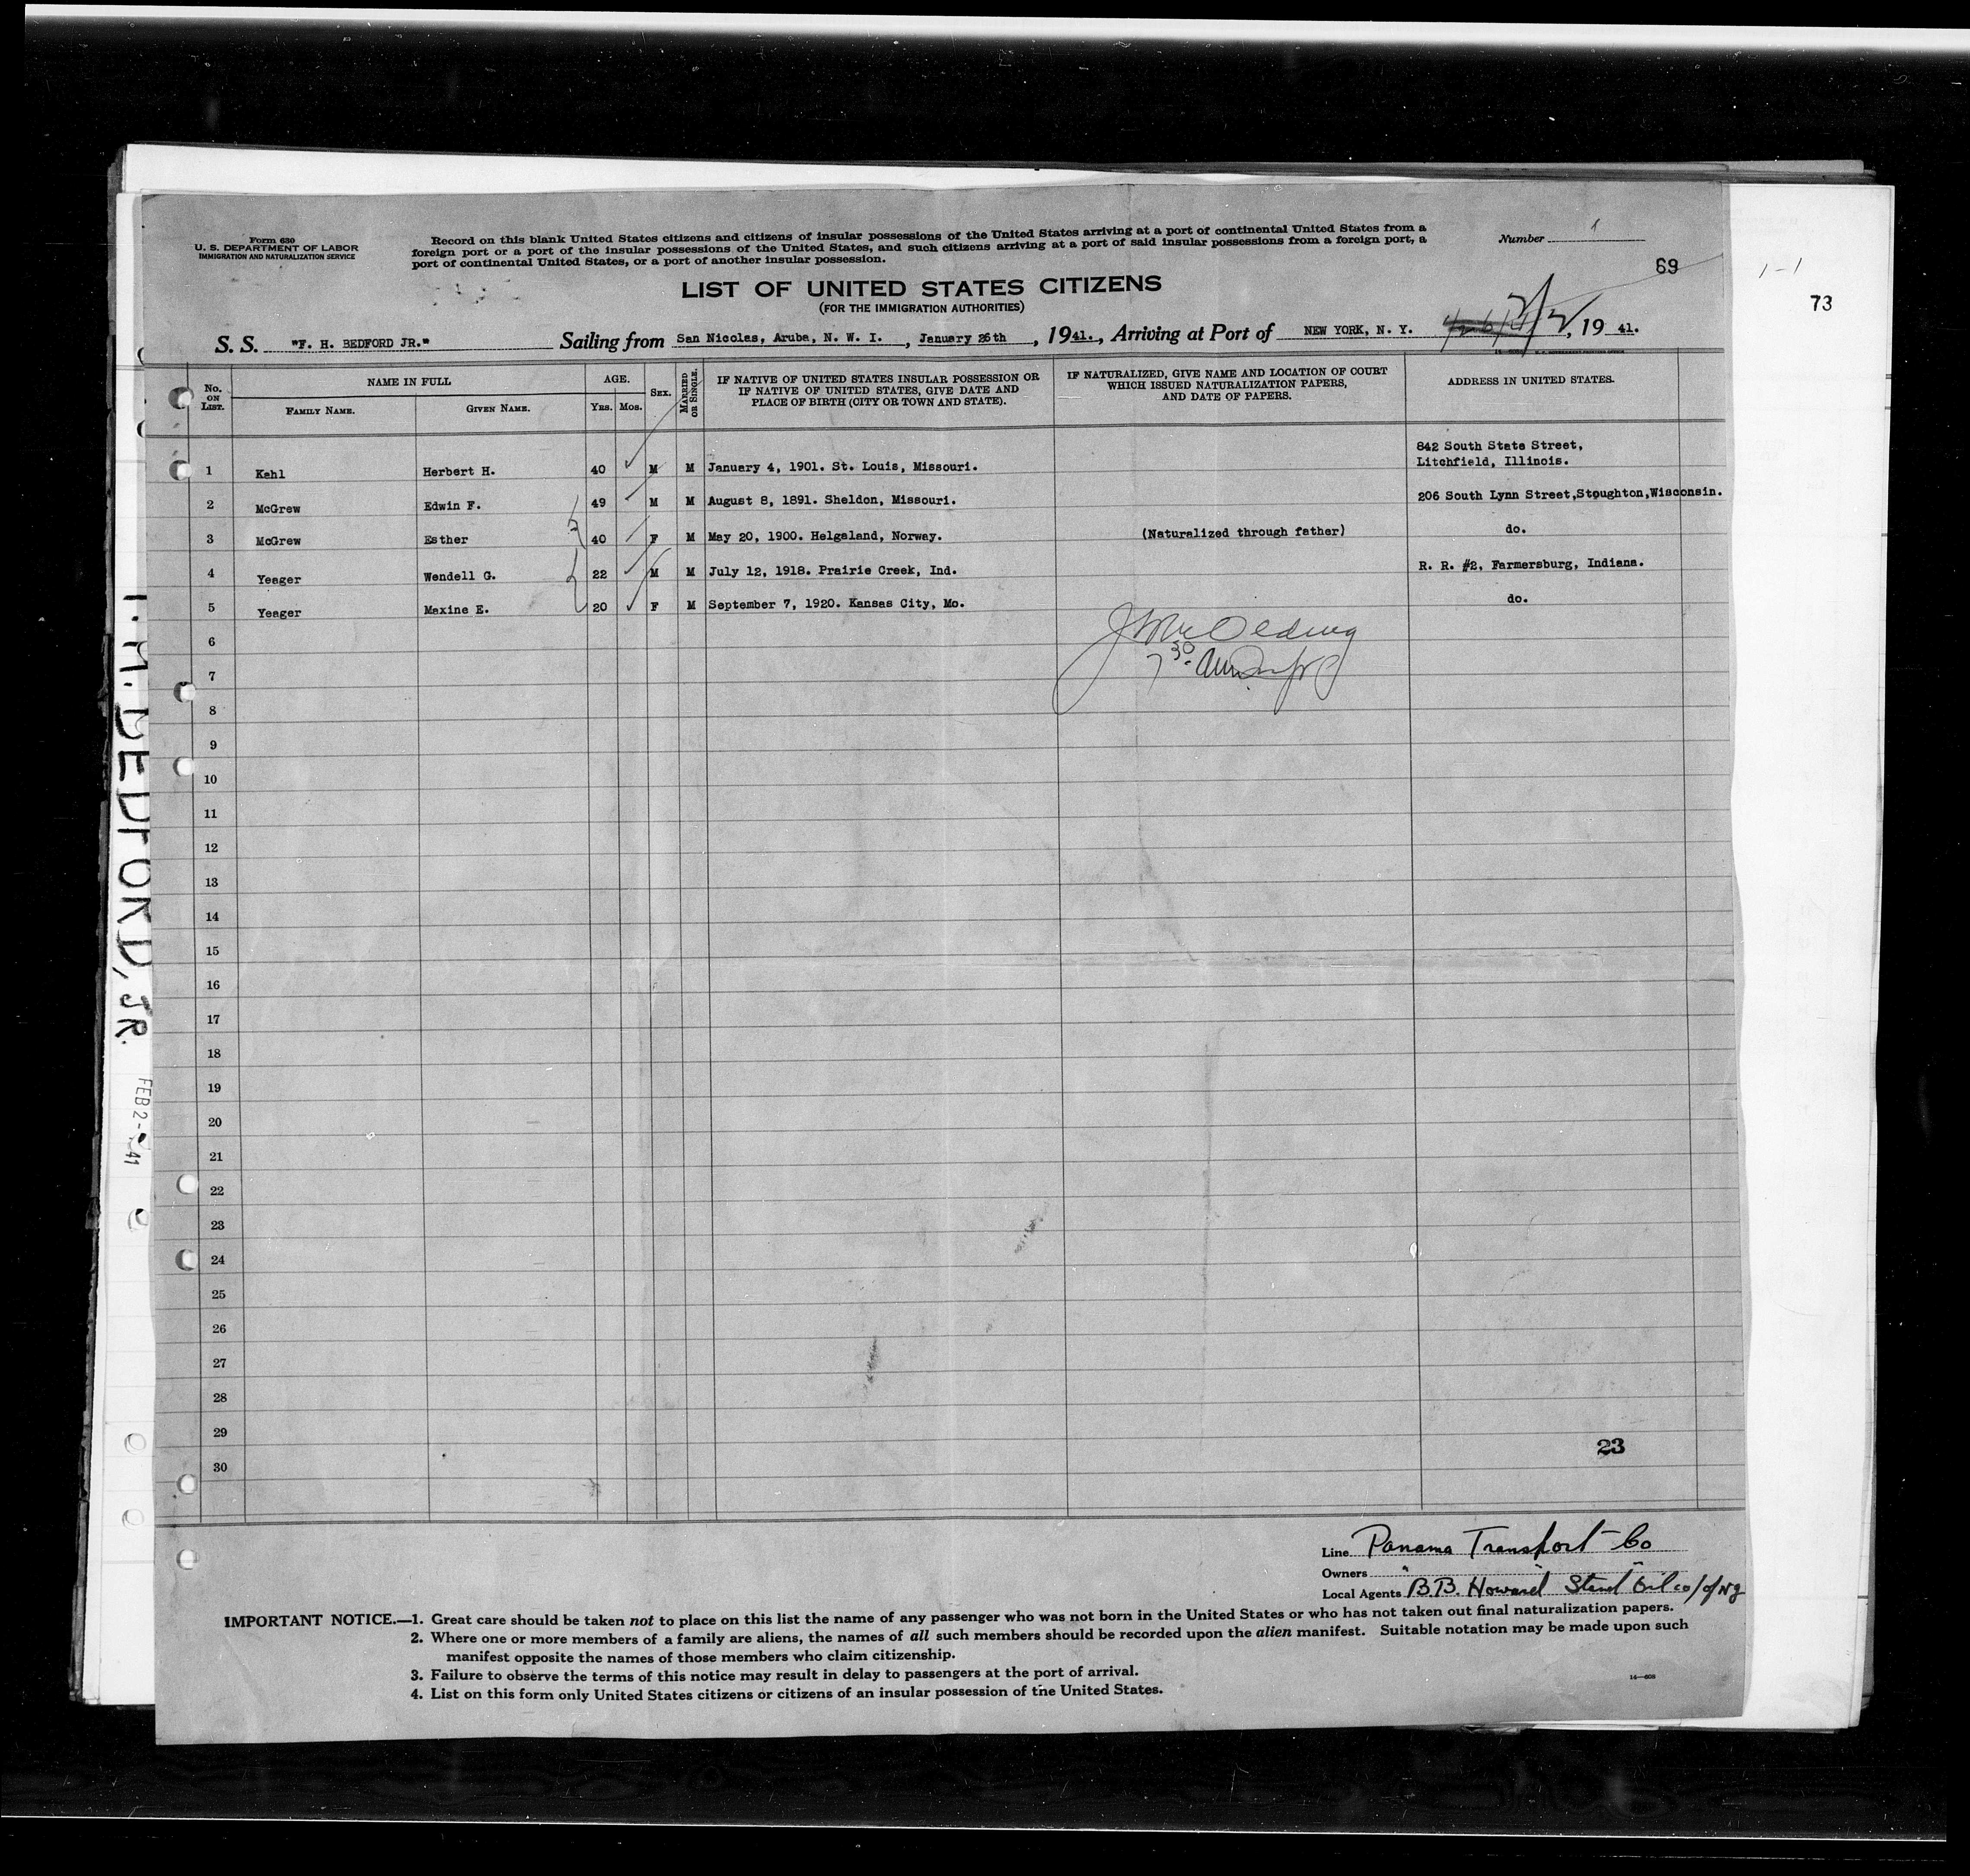 Form 630
U. S. DEPARTMENT OF LABOR
IMMIGRATION AND NATURALIZATION SERVICE
Record on this blank United States citizens and citizens of insular possessions of the United States arriving at a port of continental United States from a
foreign port or a port of the insular possessions of the United States, and such citizens arriving at a port of said insular possessions from a foreign port, a
port of continental United States, or a port of another insular possession.
Number 1
69
1-1
73
LIST OF UNITED STATES CITIZENS
(FOR THE IMMIGRATION AUTHORITIES)
S. S. "F. H. BEDFORD JR." Sailing from San Nicolas, Aruba, N. W. I., January 26th, 1941., Arriving at Port of NEW YORK, N. Y. 2/2, 19 41.
No. ON LIST. NAME IN FULL AGE. SEX. MARRIED OR SINGLE. IF NATIVE OF UNITED STATES INSULAR POSSESSION OR IF NATIVE OF UNITED STATES, GIVE DATE AND PLACE OF BIRTH (CITY OR TOWN AND STATE). IF NATURALIZED, GIVE NAME AND LOCATION OF COURT WHICH ISSUED NATURALIZATION PAPERS, AND DATE OF PAPERS. ADDRESS IN UNITED STATES.
FAMILY NAME. GIVEN NAME. YRS. MOS.
842 South State Street,
1 Kahl Herbert H. 40 M M January 4, 1901. St. Louis, Missouri. Litchfield, Illinois.
2 McGrew Edwin F. 49 M M August 8, 1891. Sheldon, Missouri. 206 South Lynn Street,Stoughton,Wisconsin.
3 McGrew Esther 40 F M May 20, 1900. Helgeland, Norway. (Naturalized through father) do.
4 Yeager Wendell G. 22 M M July 12, 1918. Prairie Creek, Ind. R. R. #2, Farmersburg, Indiana.
5 Yeager Maxine E. 20 F M September 7, 1920. Kansas City, Mo. do.
6
7
8
9
10
11
12
13
14
15
16
17
18
19
20
21
22
23
24
25
26
27
28
29
23
30
Line Panama Transport Co
Owners "
Local Agents B.B. Howard Stand Oil co/of NJ
IMPORTANT NOTICE.—1. Great care should be taken not to place on this list the name of any passenger who was not born in the United States or who has not taken out final naturalization papers.
2. Where one or more members of a family are aliens, the names of all such members should be recorded upon the alien manifest. Suitable notation may be made upon such
manifest opposite the names of those members who claim citizenship.
3. Failure to observe the terms of this notice may result in delay to passengers at the port of arrival.
4. List on this form only United States citizens or citizens of an insular possession of the United States.
14—608
F. H. BEDFORD, JR. FEB 2 - 41